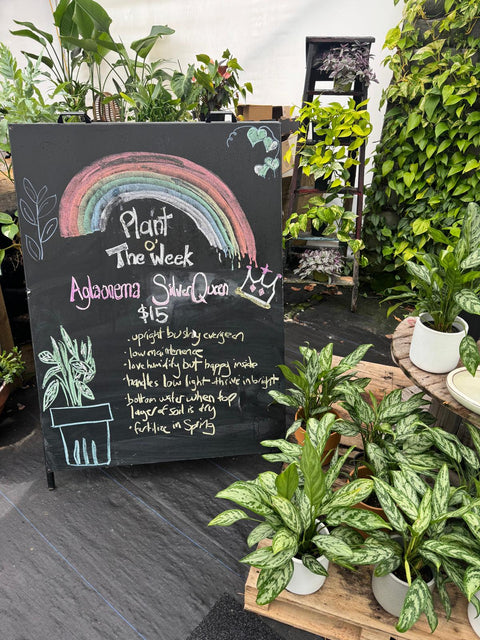 Plant
O'
The Week
Aglaonema Silver Queen
$15
. upright bushy evergreen
. low maintenence
. love humidity but happy inside
. handles low light - thrive in bright
. bottom water when top
layer of soil is dry
. fertilize in Spring